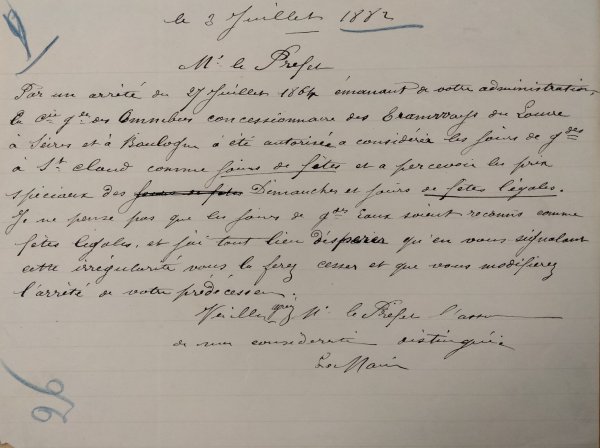 le 3 Juillet 1882
Mr le Prefet
Par un arrêté du 27 Juillet 1864 émanant de votre administration,
la cie gle des Omnibus concessionnaire des Tramways du Louvre
à Sèvres et à Boulogne a été autorisée a considérer les jours de gdes
à St Cloud comme jours de fêtes et a percevoir les prix
spéciaux des jours de fetes Dimanches et jours de fêtes légales.
Je ne pense pas que les jours de gdes Eaux soient reconnus comme
fêtes légales, et j'ai tout lien d'espérer qu'en vous signalant
cette irrégularité vous la ferez cesser et que vous modifierez
l'arrêté de votre prédécesseur.
Veuillez agréer Mr le Prefet l'assu
de ma considérati distinguée
Le Maire
26